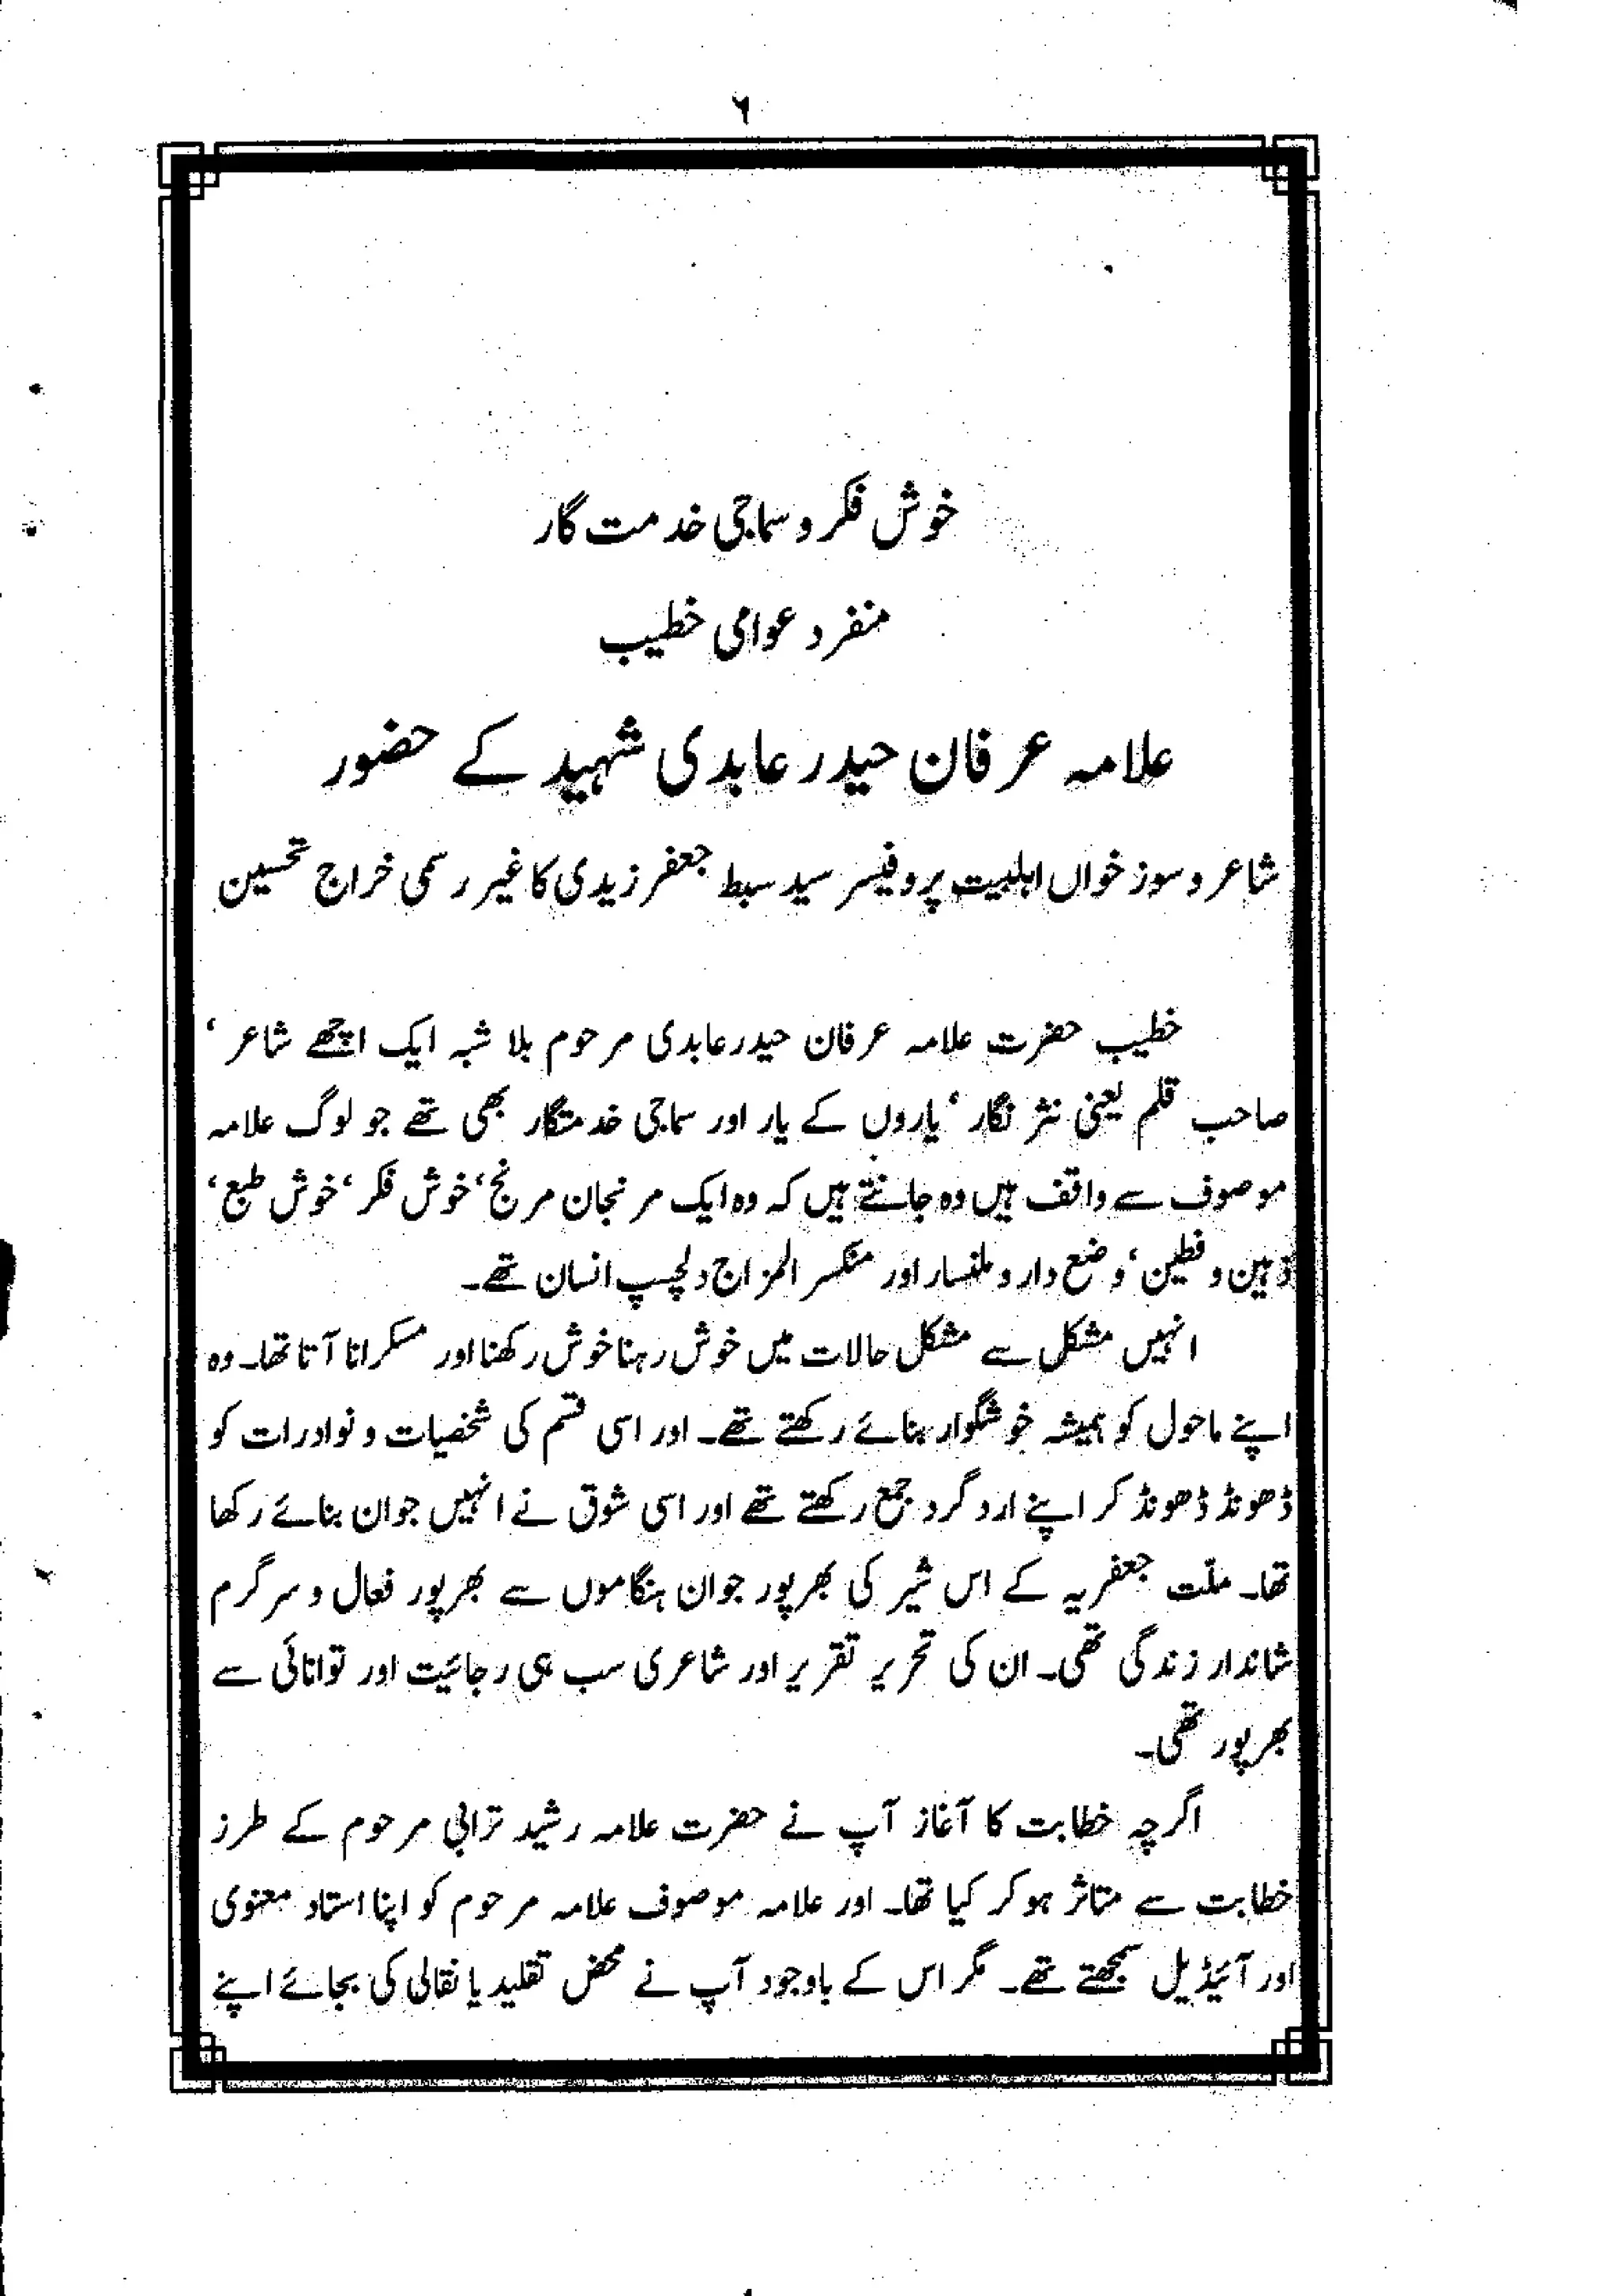 ۶
خوش فکر و سماجی خدمت گار
منفرد عوامی خطیب
علامہ عرفان حیدر عابدی شہید کے حضور
شاعر و سوز خواں اہلبیت پروفیسر سید سبط جعفر زیدی کا غیر رسمی خراج تحسین
خطیب حضرت علامہ عرفان حیدر عابدی مرحوم بلا شبہ ایک اچھے شاعر ‘
صاحب قلم یعنی نثر نگار ‘ یاروں کے یار اور سماجی خدمتگار بھی تھے جو لوگ علامہ
موصوف سے واقف ہیں وہ جانتے ہیں کہ وہ ایک مرنجان مرنج ‘ خوش فکر ‘ خوش طبع ‘
ذہین و فطین ‘ وضع دار و ملنسار اور منکسر المزاج دلچسپ انسان تھے۔
انہیں مشکل سے مشکل حالات میں خوش رہنا خوش رکھنا اور مسکرانا آتا تھا۔ وہ
اپنے ماحول کو ہمیشہ خوشگوار بنائے رکھتے تھے۔ اور اسی قسم کی شخصیات و نوادرات کو
ڈھونڈ ڈھونڈ کر اپنے ارد گرد جمع رکھتے تھے اور اسی شوق نے انہیں جوان بنائے رکھا
تھا۔ ملّت جعفریہ کے اس شیر کی بھرپور جوان ہنگاموں سے بھرپور فعال و سرگرم
شاندار زندگی تھی۔ ان کی تحریر تقریر اور شاعری سب ہی رجائیت اور توانائی سے
بھرپور تھی۔
اگرچہ خطابت کا آغاز آپ نے حضرت علامہ رشید ترابی مرحوم کے طرز
خطابت سے متاثر ہو کر کیا تھا۔ اور علامہ موصوف علامہ مرحوم کو اپنا استاد معنوی
اور آئیڈیل سمجھتے تھے۔ مگر اس کے باوجود آپ نے محض تقلید یا نقالی کی بجائے اپنے